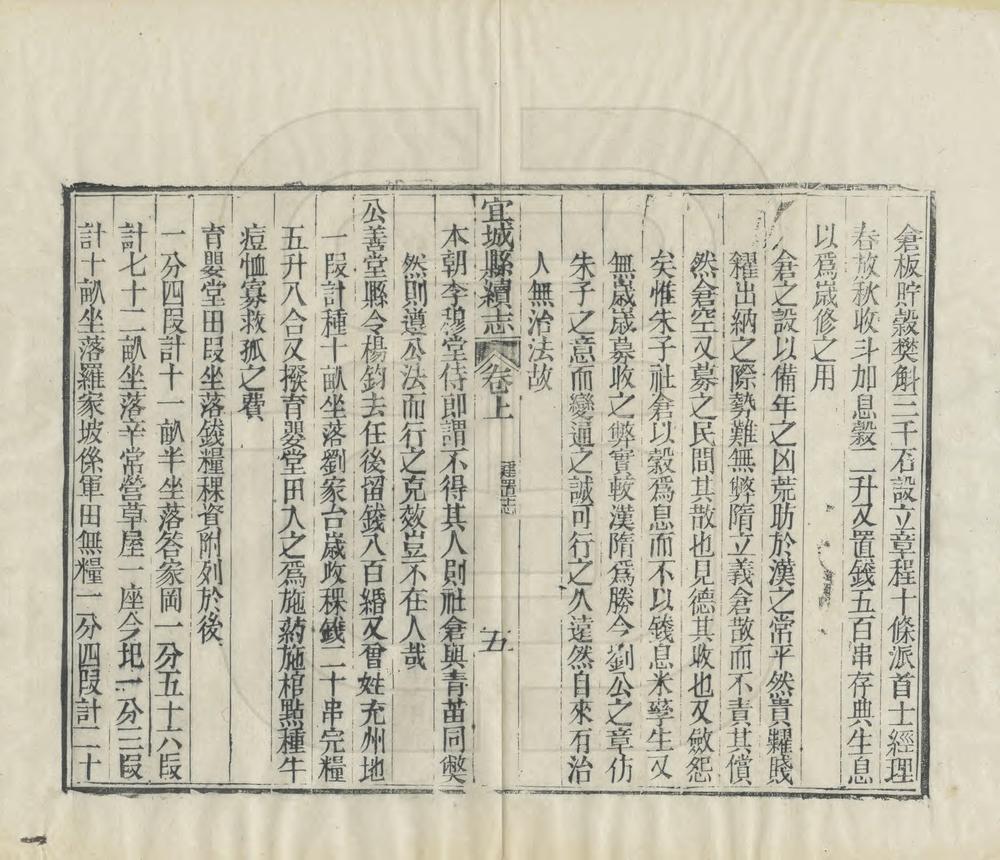 倉板貯穀樊斛三千石設立章程十條派首士經理
春放秋收斗加息穀二升又置錢五百串存典生息
以爲歲修之用
倉之設以備年之凶荒昉於漢之常平然貴糴賤
糶出納之際勢難無弊隋立義倉散而不責其償
然倉空又募之民間其散也見德其收也又斂怨
矣惟朱子社倉以穀爲息而不以錢息米孳生又
無歲歲募收之弊實較漢隋爲勝今劉公之章仿
朱子之意而變通之誠可行之久遠然自來有治
人無治法故
宜城縣續志 卷上 建置志 五
本朝李穆堂侍郎謂不得其人則社倉與青苗同獘
然則遵公法而行之克效豈不在人哉
公善堂縣令楊鈞去任後留錢八百緡又曾姓充州地
一叚計種十畝坐落劉家台歲收稞錢二十串完糧
五升八合又撥育嬰堂田入之爲施葯施棺點種牛
痘恤寡救孤之費
育嬰堂田叚坐落錢糧稞資附列於後
一分四叚計十一畝半坐落答家岡一分五十六叚
計七十二畝坐落辛常營草屋一座今圯一分三叚
計十畝坐落羅家坡係軍田無糧一分四叚計二十